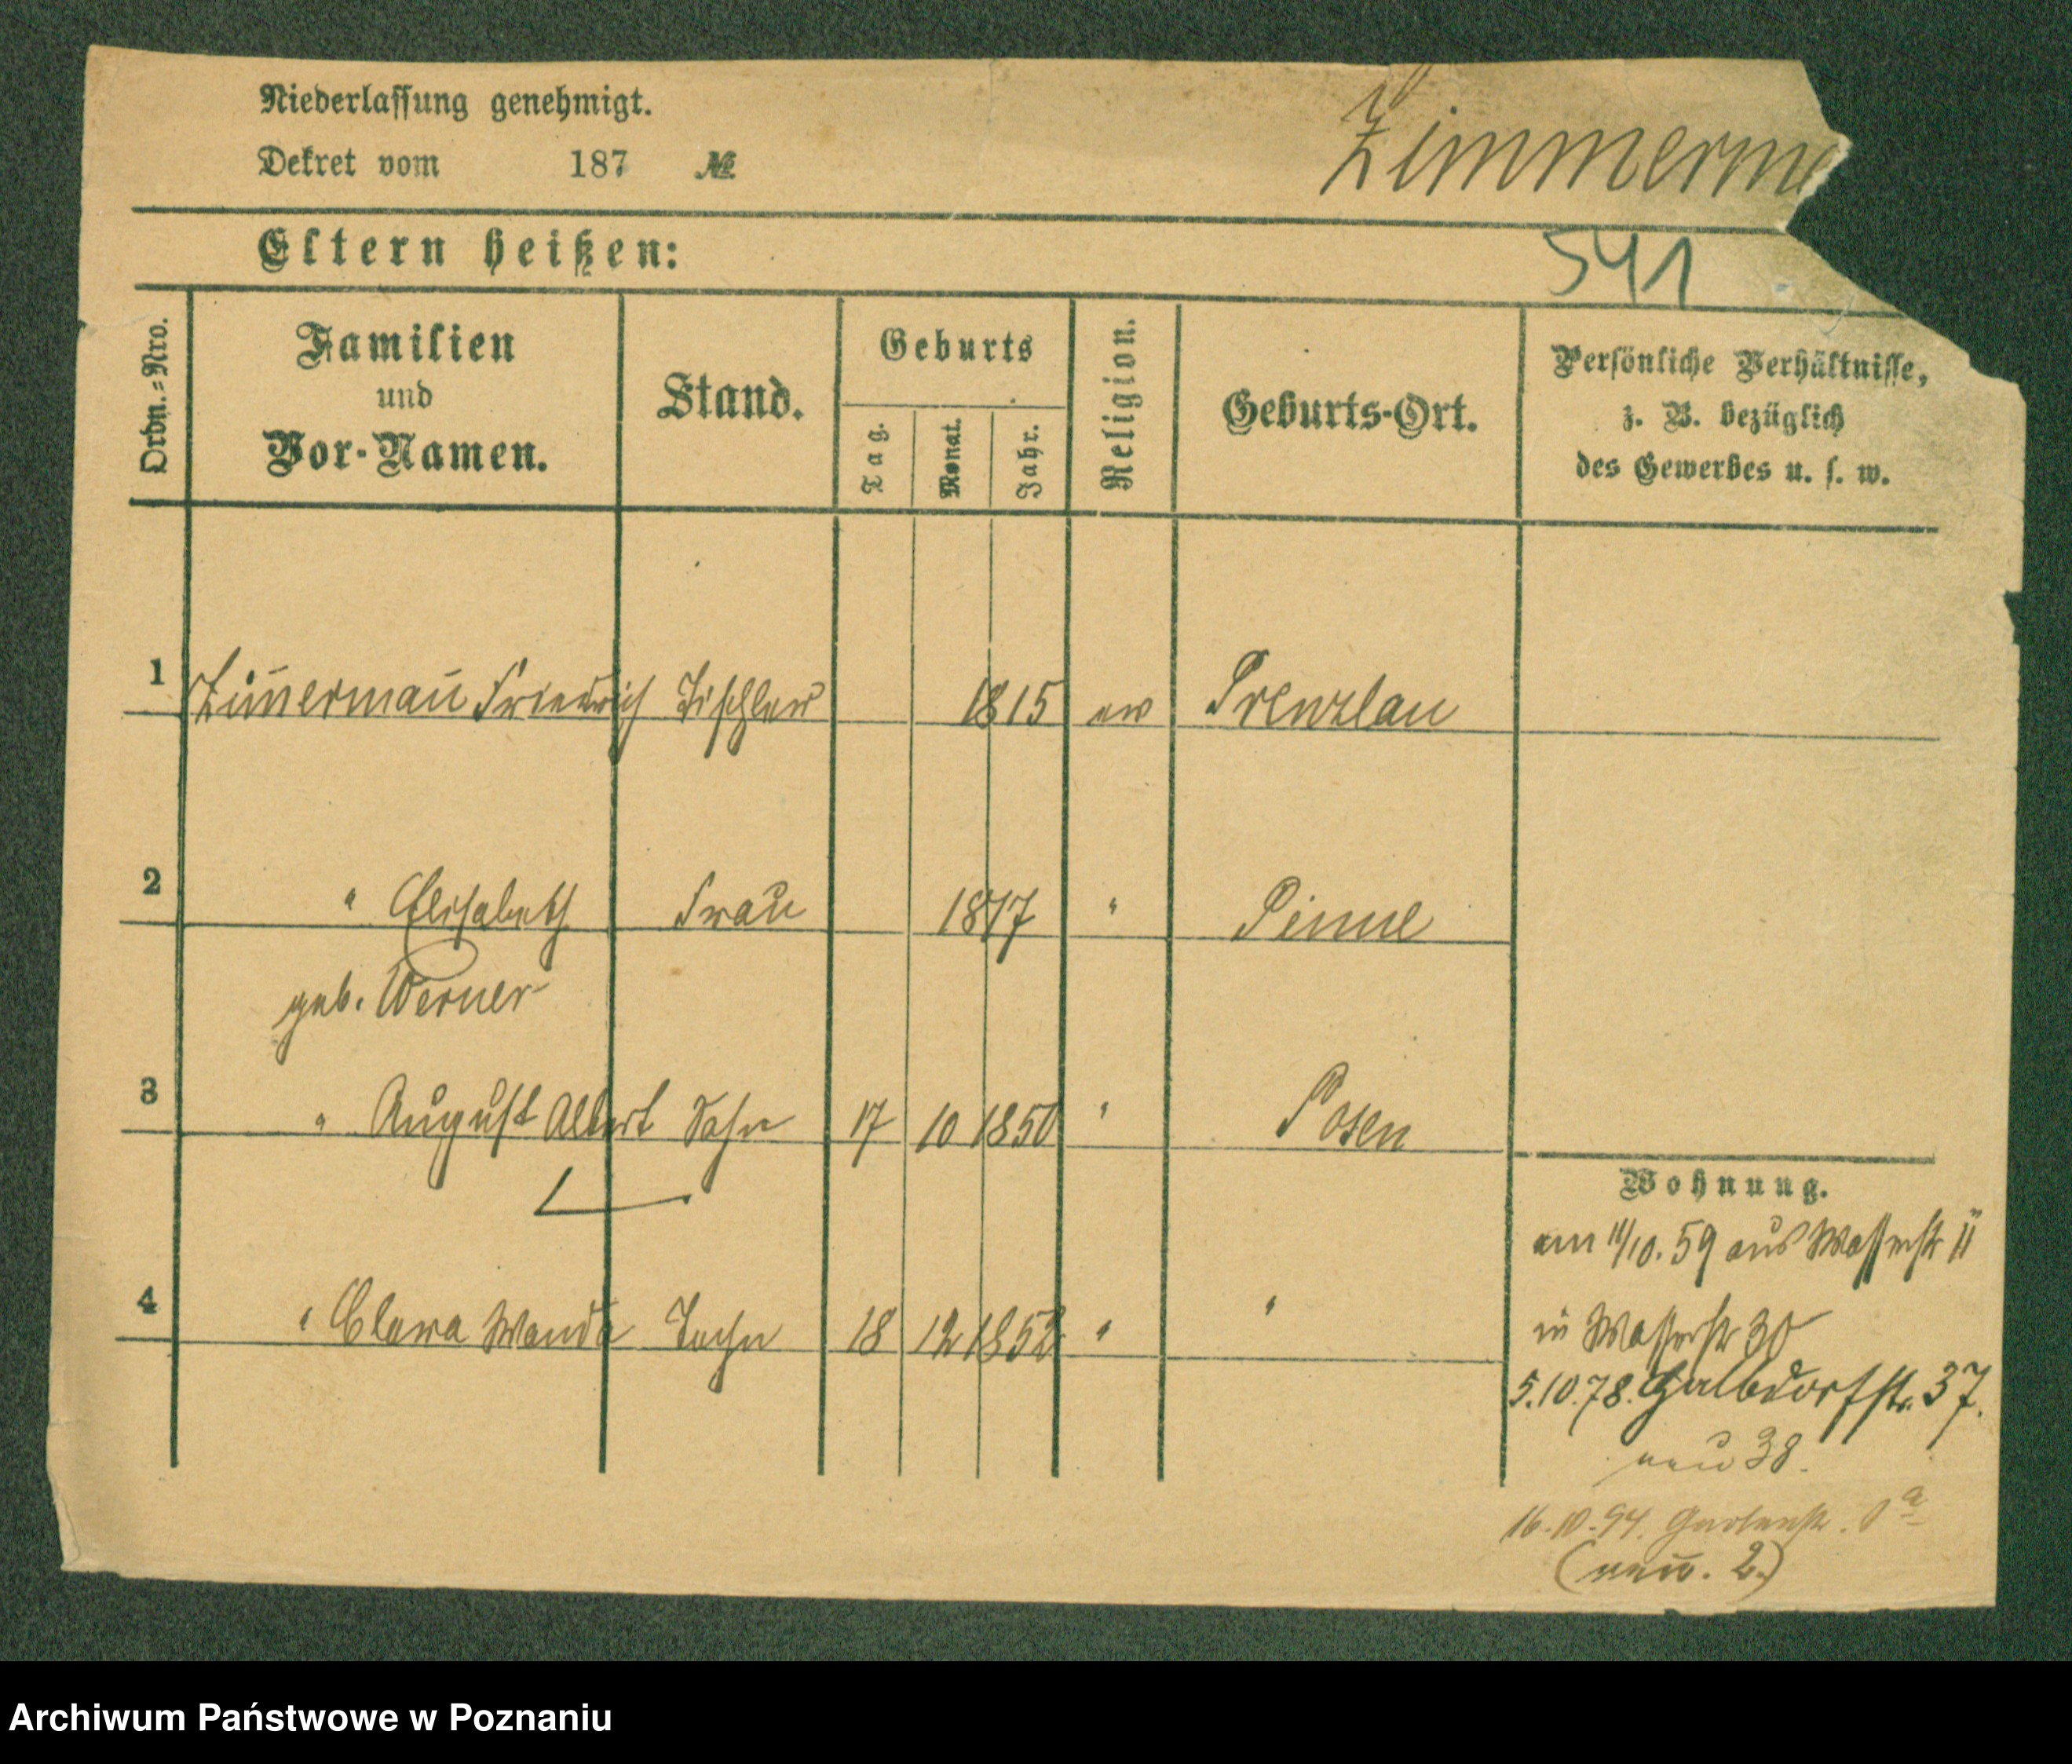 Niederlassung genehmigt.
Dekret vom 187 №
Zimmerma
Eltern heißen:
541
Ordn.=Nro.
Familien
und
Vor-Namen.
Stand.
Geburts
Tag.
Monat.
Jahr.
Religion.
Geburts-Ort.
Persönliche Verhältnisse,
z. B. bezüglich
des Gewerbes u. s. w.
1 Zim̄erman̄ Friedrich Tischler 1815 ev Prenzlau
2 " Elisabeth Frau 1817 " Pinne
geb. Werner
3 " August Albert Sohn 17 10 1850 " Posen
4 " Clara Wanda Tocht 18 12 1852 " "
Wohnung.
am 11/10. 59 aus Wasserstr 11
in Wasserstr 30
5.10.78. Halbdorfstr. 37.
neu 38.
16.10.94. Gartenstr. 1a
(neu. 2.)
Archiwum Państwowe w Poznaniu